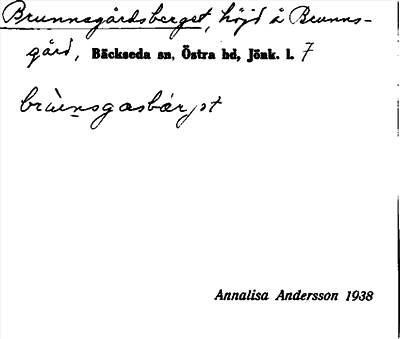 Brunnsgårdsberget, höjd å Brunns-
gård, Bäckseda sn, Östra hd, Jönk. l. 7
Annalisa Andersson 1938